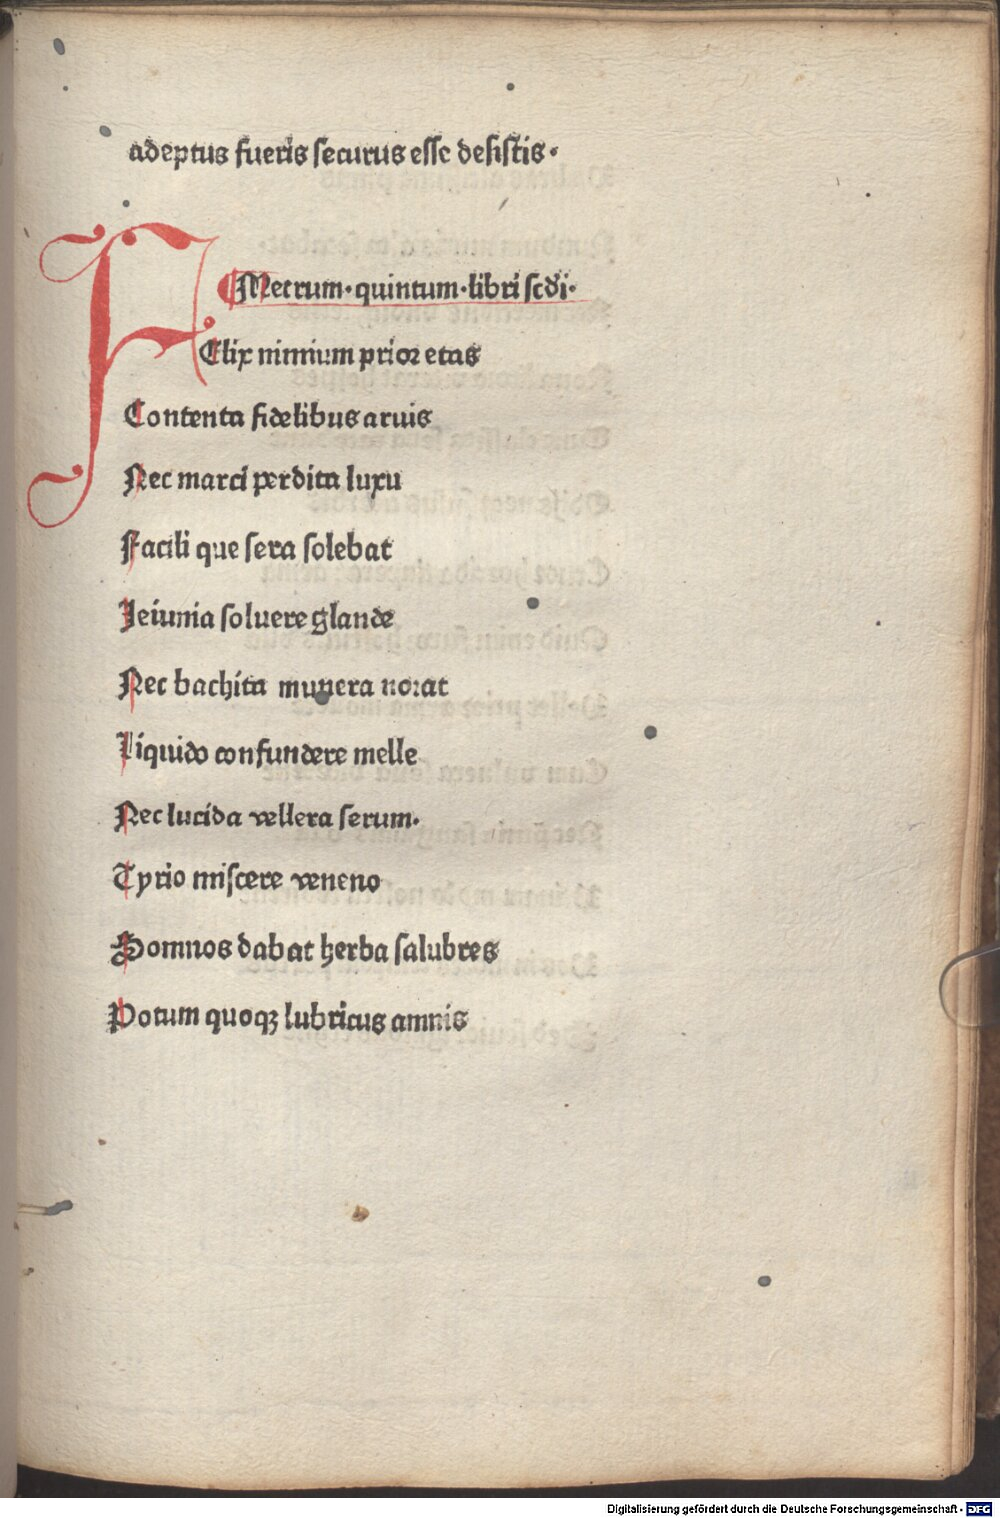 adeptus fueris securus esse desistis.
Metrum.quintum.libri scdi.
FElix nimium prior etas
Contenta fidelibus aruis
Nec marci perdita luxu
Facili que sera solebat
Ieiunia soluere glande
Nec bachita munera norat
Liquido confundere melle
Nec lucida vellera serum.
Tyrio miscere veneno
Somnos dabat herba salubres
Potum quoqꝫ lubricus amnis
Digitalisierung gefördert durch die Deutsche Forschungsgemeinschaft - DFG